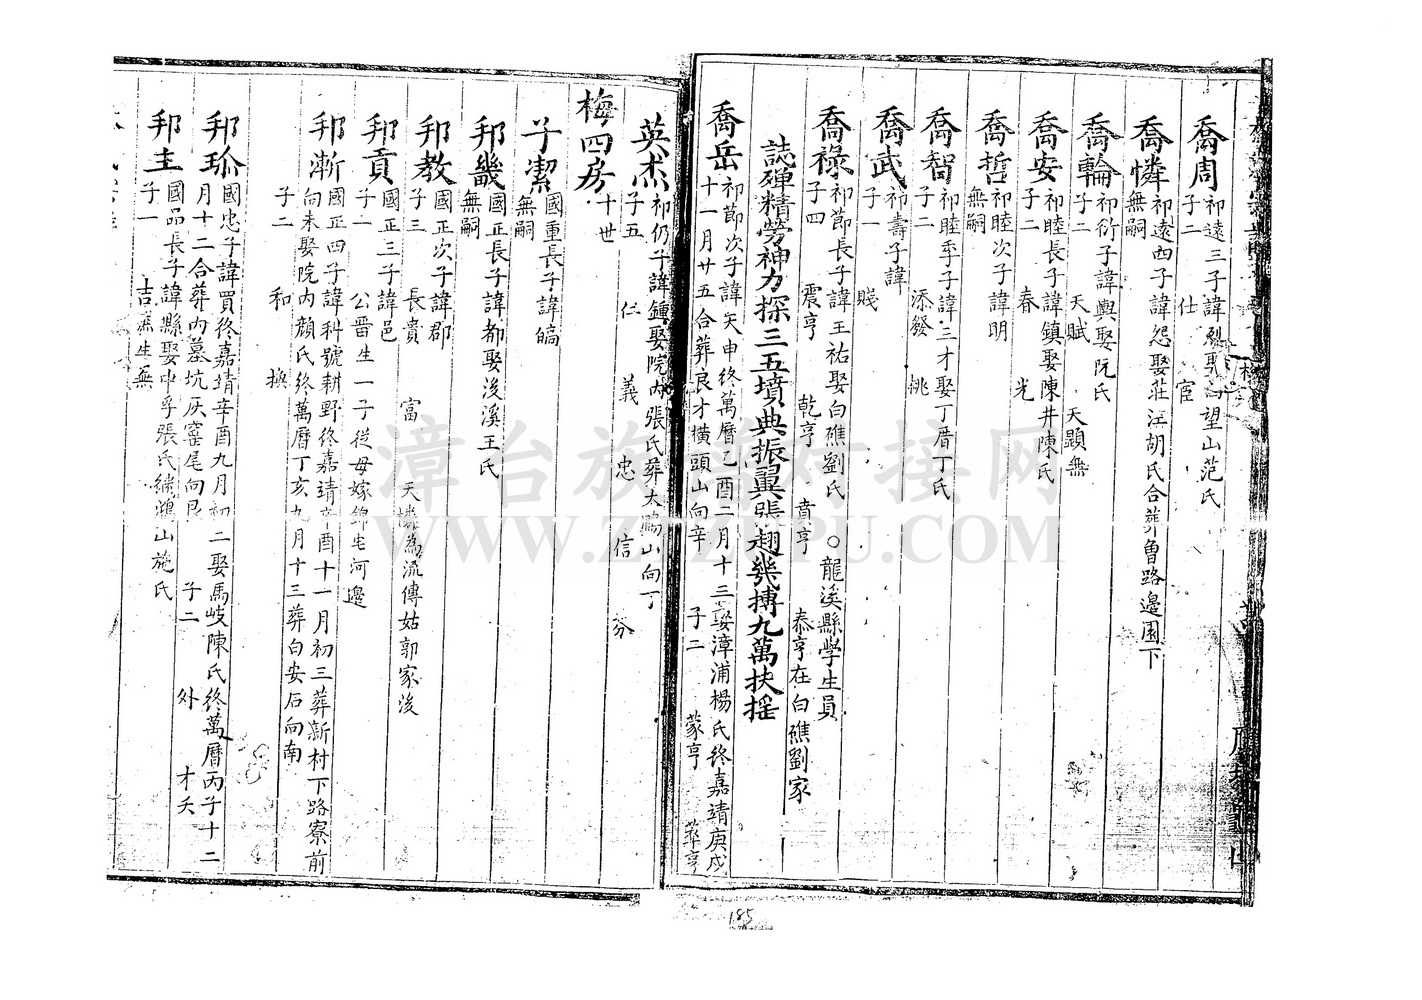 喬周 祁遠三子諱 娶 望山范氏
子二 仕 宦
喬憐 祁遠四子諱怨娶莊江胡氏合葬魯路邊園下
無嗣
喬輪 祁衍子諱輿娶阮氏
子二 天賦 天顯無
喬安 祁睦長子諱鎮娶陳井陳氏
子二 春 光
喬哲 祁睦次子諱明
無嗣
喬智 祁睦季子諱三才娶丁厝丁氏
子二 添發 桃
喬武 祁壽子諱
子一 賤
喬祿 祁節長子諱王祐娶白礁劉氏 ○龍溪縣學生員
子四 震亨 乾亨 貢亨 泰亨在白礁劉家
誌殫精勞神力探三五墳典振翼張翅幾搏九萬扶搖
喬岳 祁節次子諱矢申終萬曆乙酉二月十三娶漳浦楊氏終嘉靖庚戌
十一月廿五合葬良才橫頭山向辛 子二 蒙亨 萃亨
英杰 祁仍子諱鍾娶院內張氏葬大鵬山向丁
子五 仁 義 忠 信 芬
梅四房 十世
子潔 國重長子諱皜
無嗣
邦畿 國正長子諱都娶後溪王氏
無嗣
邦教 國正次子諱郡
子三 長貴 富 天憐為流傳姑郭家後
邦貢 國正三子諱邑
子一 公晉生一子從母嫁錦宅河邊
邦漸 國正四子諱科號耕野終嘉靖辛酉十一月初三葬新村下路寮前
向未娶院內顏氏終萬曆丁亥九月十三葬白安后向南
子二 和 換
邦珍 國忠子諱買終嘉靖辛酉九月初二娶馬岐陳氏終萬曆丙子十二
月十二合葬內墓坑灰窰尾向艮 子二 外 才夭
邦主 國品長子諱縣娶中孚張氏繼鴻山施氏
子一 吉 生無
漳台族谱对接网
WWW.ZTZUPU.COM
185